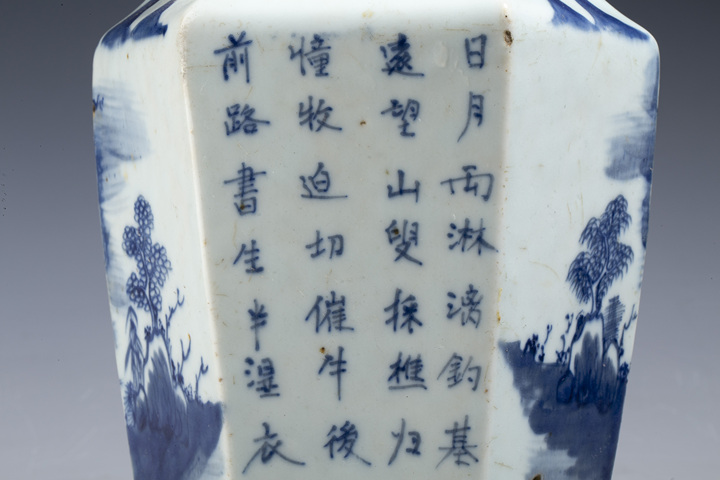 日月雨淋漓釣基
遠望山叟採樵归
憧牧迫切催牛後
前路書生半湿衣